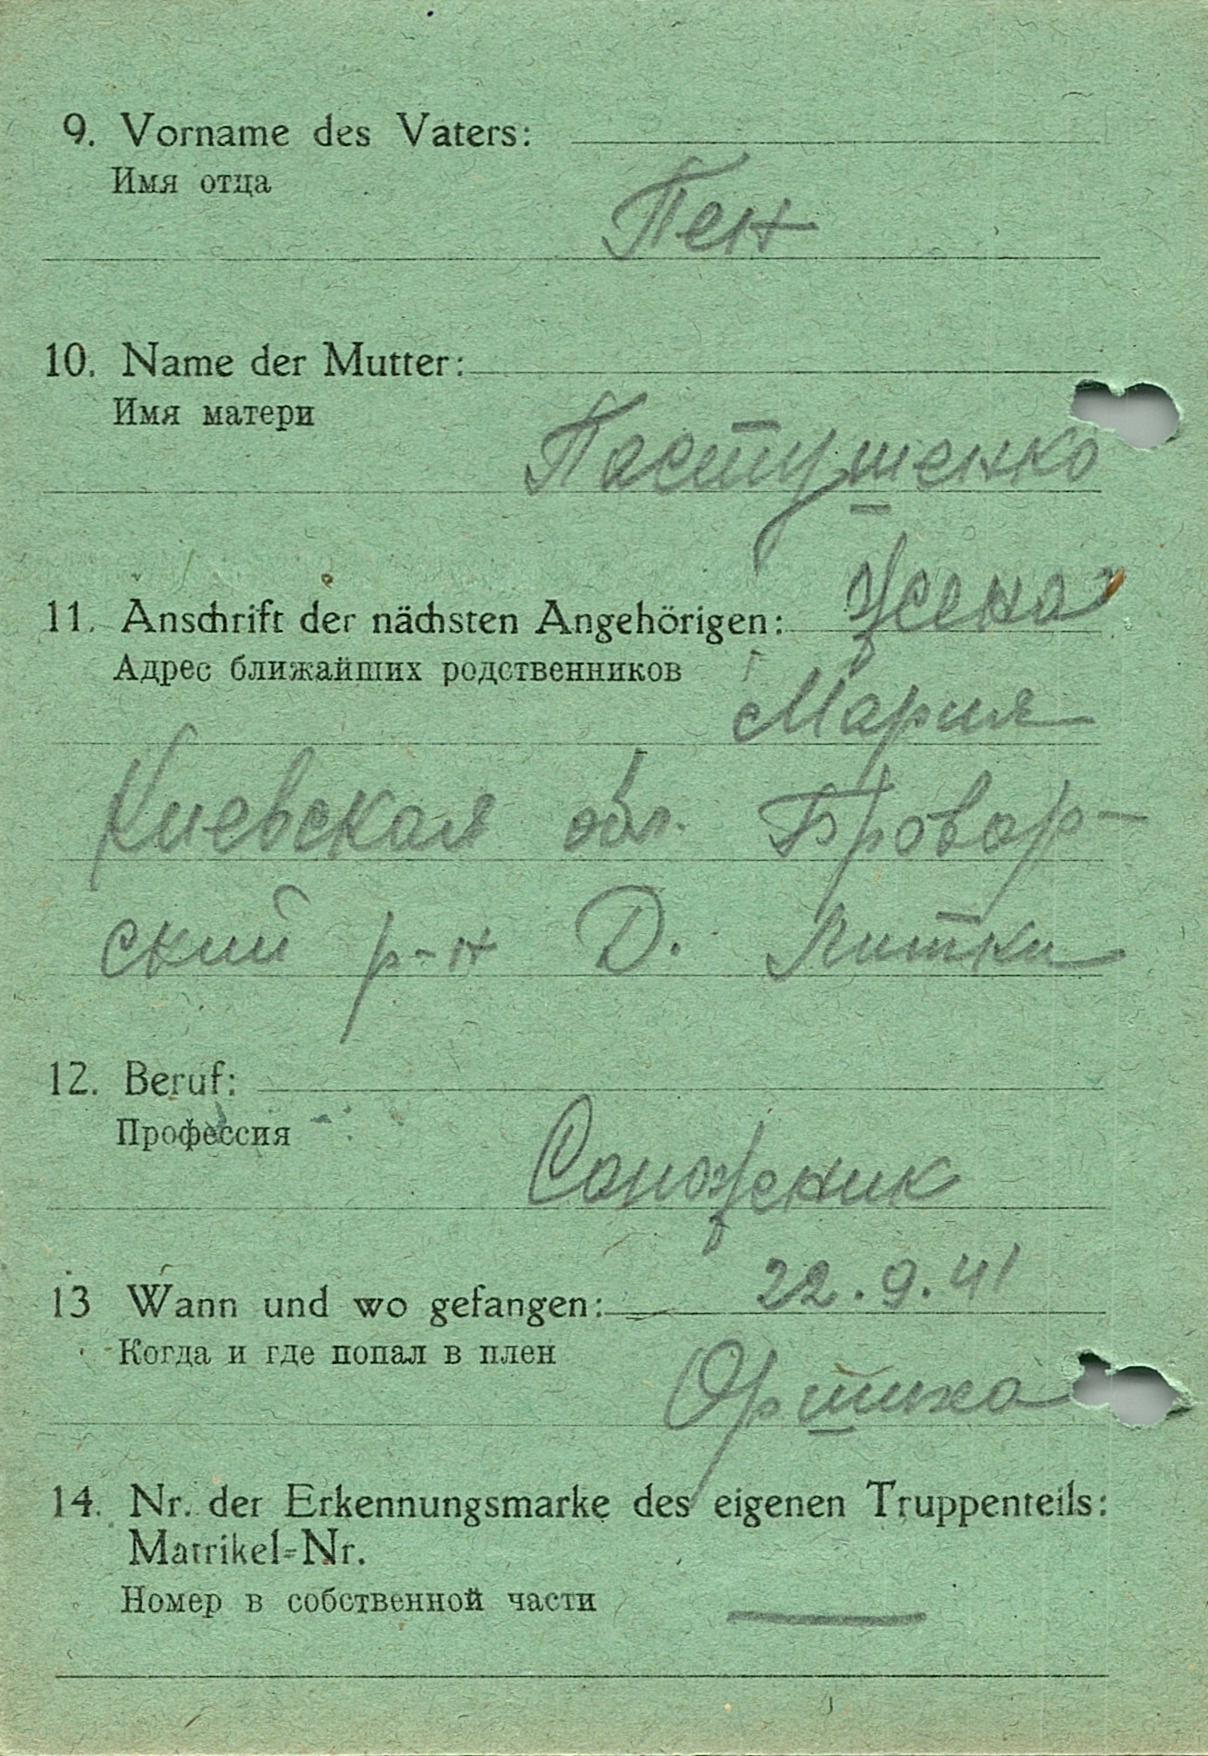 9. Vorname des Vaters:
Имя отца
Пен
10. Name der Mutter:
Имя матери
Пастушенко
11. Anschrift der nächsten Angehörigen: Жена
Адрес ближайших родственников
Мария
Киевская обл. Бровар-
ский р-н Д. Литки
12. Beruf:
Профессия
Сапожник
13 Wann und wo gefangen: 22.9.41
Когда и где попал в плен
Оршиха
14. Nr. der Erkennungsmarke des eigenen Truppenteils:
Matrikel-Nr.
Номер в собственной части